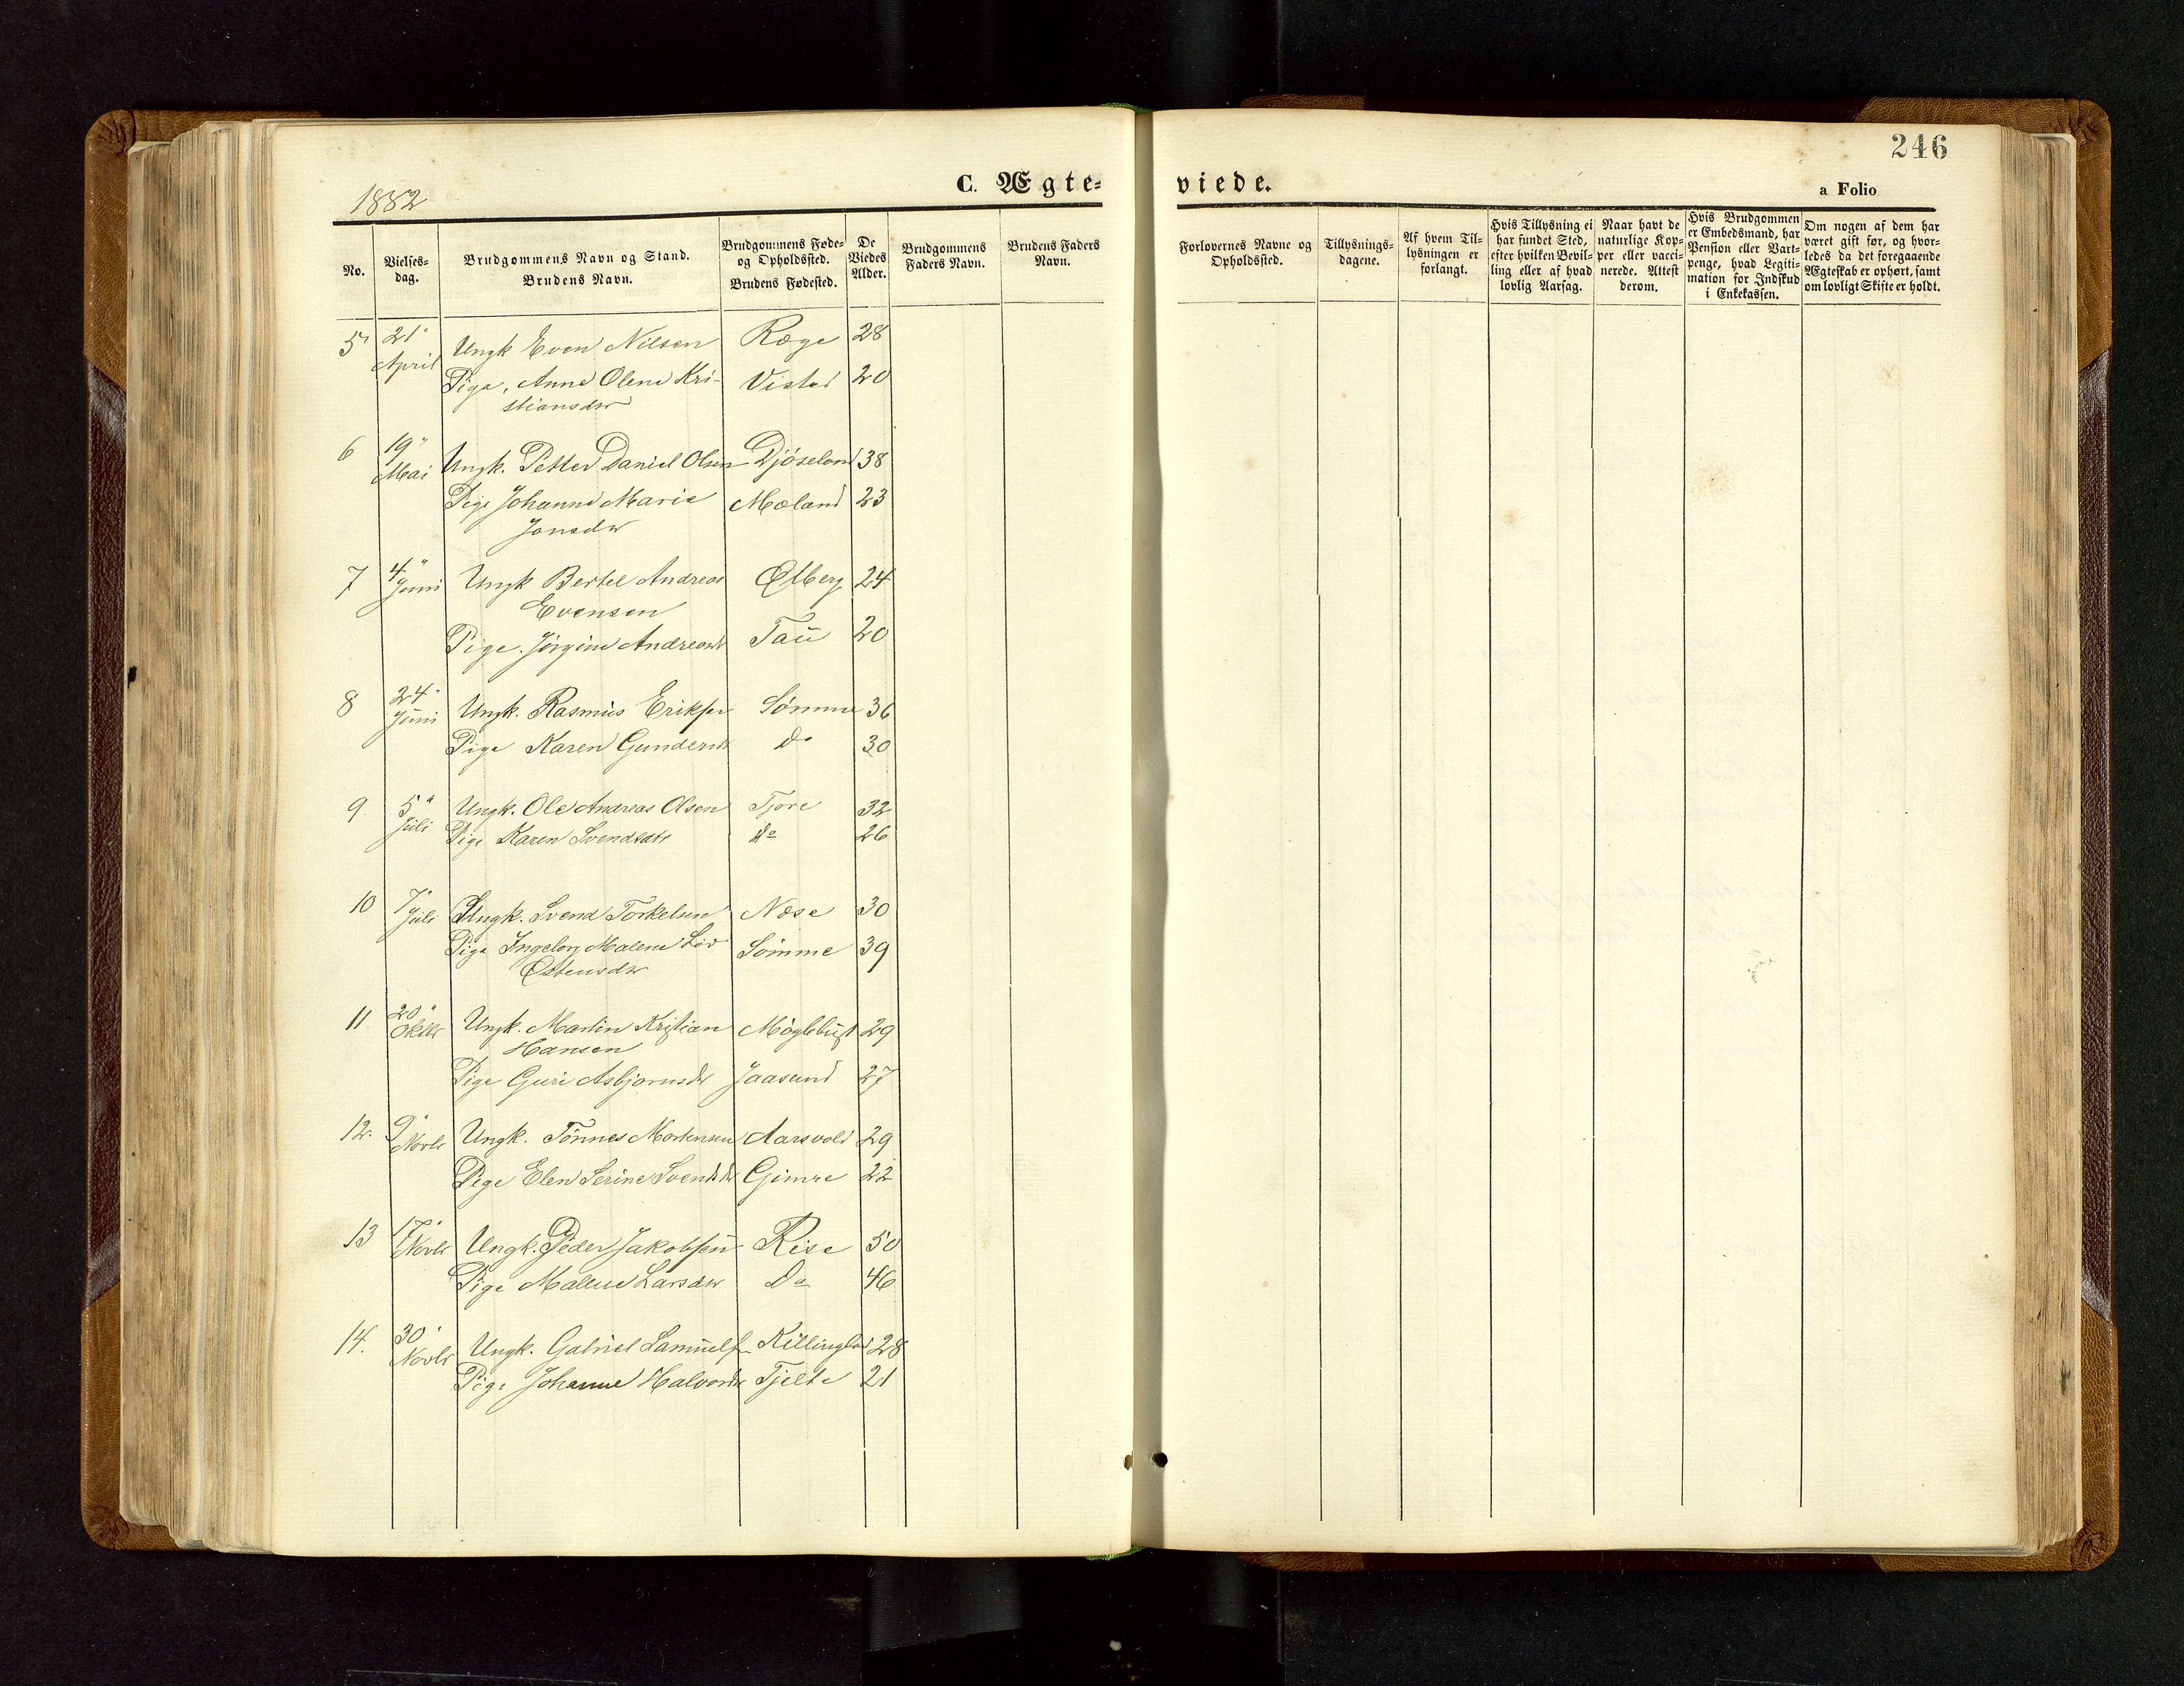 246
C. Ægte-
viede.
a Folio
1882
No.
Vielses-
dag.
Brudgommens Navn og Stand.
Brudens Navn.
Brudgommens Føde-
og Opholdssted.
Brudens Fødested.
De
Viedes
Alder.
Brudgommens
Faders Navn.
Brudens Faders
Navn.
Forlovernes Navne og
Opholdssted.
Tillysnings-
dagene.
Af hvem Til-
lysningen er
forlangt.
Hvis Tillysning ei
har fundet Sted,
efter hvilken Bevil-
ling eller af hvad
lovlig Aarsag.
Naar havt de
naturlige Kop-
per eller vacci-
nerede. Attest
derom.
Hvis Brudgommen
er Embedsmand, har
Pension eller Vart-
penge, hvad Legiti-
mation for Indskud
i Enkekassen.
Om nogen af dem har
været gift før, og hvor-
ledes da det foregaaende
Ægteskab er ophørt, samt
om lovligt Skifte er holdt.
5 21 April Ungk Even Nilsen Røge 28
Pige, Anne Olene Kri- Vistad 20
stiansdtr
6 19 Mai Ungk. Petter Daniel Olsen Djøseland 38
Pige Johanne Marie Mæland 23
Jonsdtr
7 4 Juni Ungk Bertel Andreas Ølberg 24
Evensen
Pige. Jörgine Andreasdr Tau 20
8 24 Juni Ungk. Rasmus Eriksen Sömme 36
Pige Karen Gundersdr Do 30
9. 5 Juli Ungk. Ole Andreas Olsen Tjore 32
Pige Karen Svendsdtr do 26
10 7 Juli Ungk. Svend Torkelsen Næse 30
Pige Ingeborg Malene Sömme 39
Østensdtr
11. 20 Oktbr Ungk. Martin Kristian Møglebust 29
Hansen
Pige Guri Asbjørnsdr Jaasund 27
12. 9 Novbr Ungk. Tönnes Mortensen Aarsvold 29
Pige Elen Serine Svendsdtr Gimre 22
13 17 Novbr Ungk. Peder Jakobsen Rise 50
Pige Malene Larsdtr Do 46
14. 30 Novbr Ungk. Gabriel Samuels. Killingland 28
Pige Johanne Halvorsdr Tjelte 21